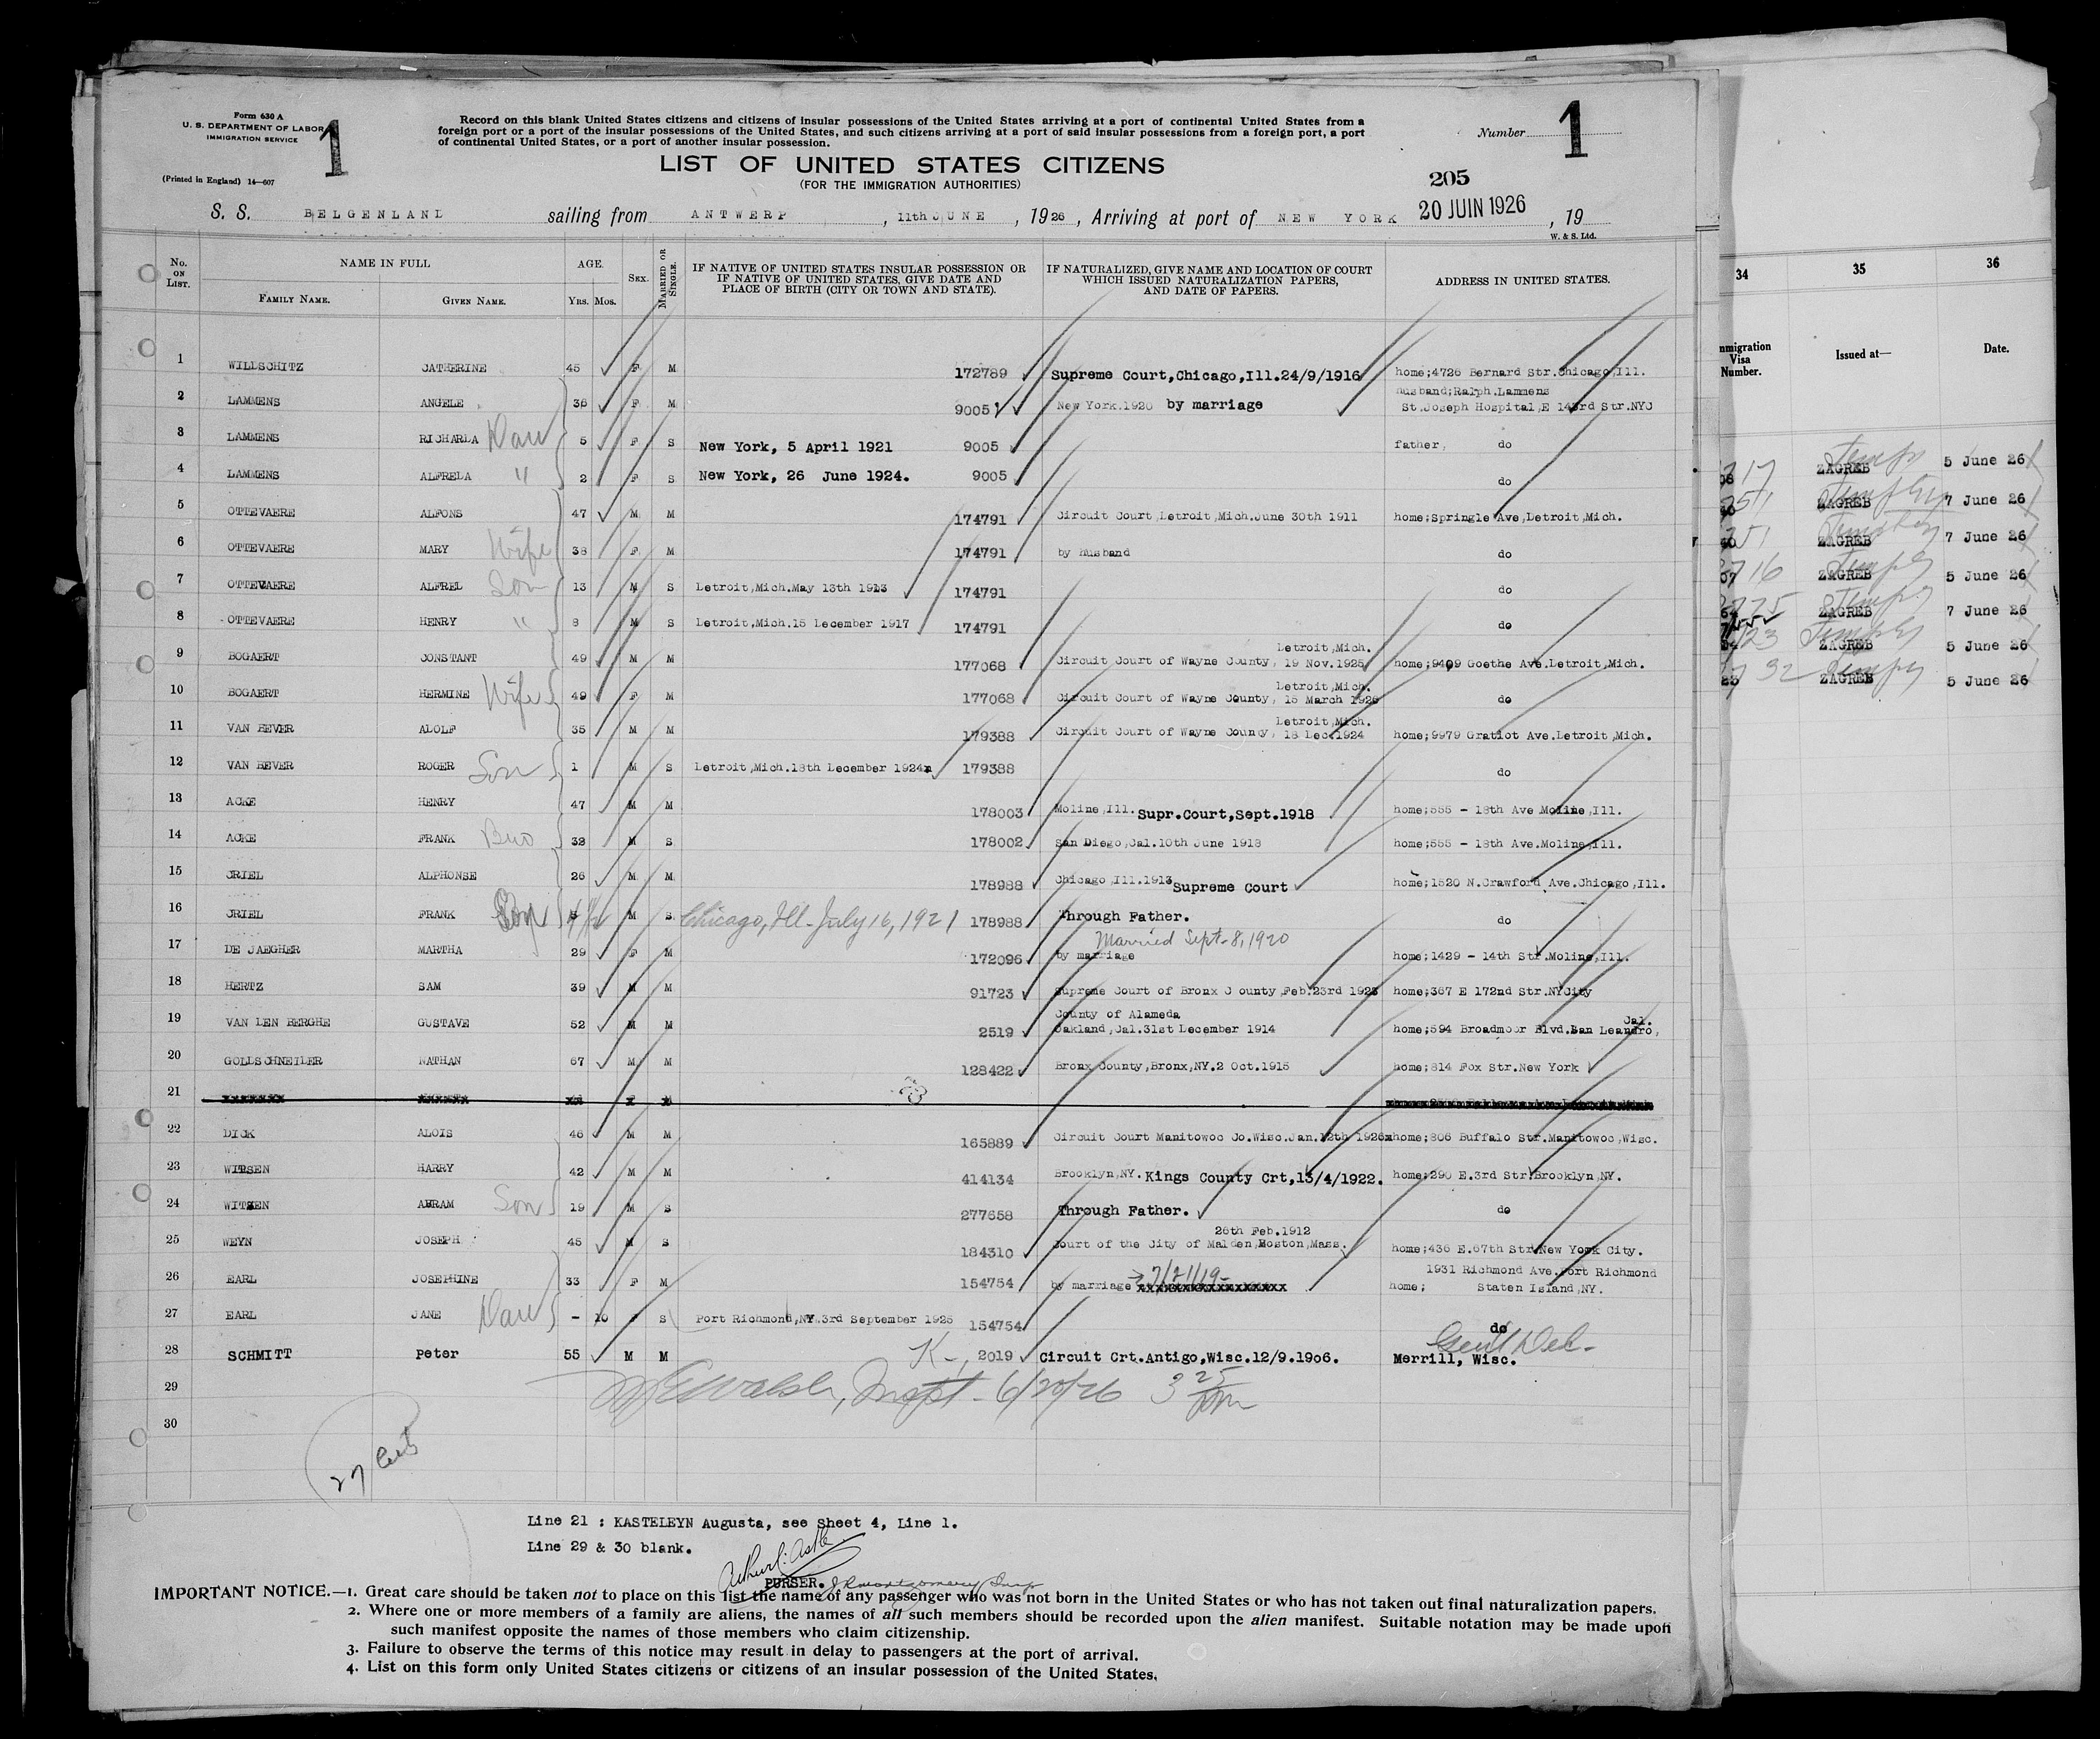 Form 630 A
U. S. DEPARTMENT OF LABOR
IMMIGRATION SERVICE
(Printed in England) 14—607
1
Record on this blank United States citizens and citizens of insular possessions of the United States arriving at a port of continental United States from a
foreign port or a port of the insular possessions of the United States, and such citizens arriving at a port of said insular possessions from a foreign port, a port
of continental United States, or a port of another insular possession.
Number 1
LIST OF UNITED STATES CITIZENS
(FOR THE IMMIGRATION AUTHORITIES)
205
S. S. BELGENLAND sailing from ANTWERP, 11th JUNE, 1926, Arriving at port of NEW YORK 20 JUIN 1926, 19
W. & S. Ltd.
No. ON LIST. NAME IN FULL AGE. SEX. MARRIED OR SINGLE. IF NATIVE OF UNITED STATES INSULAR POSSESSION OR IF NATIVE OF UNITED STATES, GIVE DATE AND PLACE OF BIRTH (CITY OR TOWN AND STATE). IF NATURALIZED, GIVE NAME AND LOCATION OF COURT WHICH ISSUED NATURALIZATION PAPERS, AND DATE OF PAPERS. ADDRESS IN UNITED STATES.
FAMILY NAME. GIVEN NAME. YRS. MOS.
1 WILLSCHITZ CATHERINE 45 F M 172789 Supreme Court,Chicago,Ill.24/9/1916 home;4726 Bernard Str.Chicago,Ill.
2 LAMMENS ANGELE 36 F M 9005 New York.1920 by marriage husband;Ralph.Lammens St.Joseph Hospital,E 143rd Str.NYC
3 LAMMENS RICHARDA Dau 5 F S New York, 5 April 1921 9005 father, do
4 LAMMENS ALFREDA " 2 F S New York, 26 June 1924. 9005 do
5 OTTEVAERE ALFONS 47 M M 174791 Circuit Court,Detroit,Mich.June 30th 1911 home;Springle Ave,Detroit,Mich.
6 OTTEVAERE MARY Wife 38 F M 174791 by husband do
7 OTTEVAERE ALFRED Son 13 M S Detroit,Mich.May 13th 1913 174791 do
8 OTTEVAERE HENRY " 8 M S Detroit,Mich.15 December 1917 174791 do
9 BOGAERT CONSTANT 49 M M 177068 Circuit Court of Wayne County, Detroit,Mich. 19 Nov.1925 home;9409 Goethe Ave.Detroit,Mich.
10 BOGAERT HERMINE Wife 49 F M 177068 Circuit Court of Wayne County, Detroit,Mich. 15 March 1926 do
11 VAN HEVER ADOLF 35 M M 179388 Circuit Court of Wayne County, Detroit,Mich. 18 Dec.1924 home;9979 Gratiot Ave.Detroit,Mich.
12 VAN HEVER ROGER Son 1 M S Detroit,Mich.18th December 1924 179388 do
13 ACKE HENRY 47 M M 178003 Moline,Ill. Supr.Court,Sept.1918 home;555 - 18th Ave Moline,Ill.
14 ACKE FRANK Bro 32 M S 178002 San Diego,Cal.10th June 1918 home;555 - 18th Ave.Moline,Ill.
15 CRIEL ALPHONSE 26 M M 178988 Chicago,Ill.1913 Supreme Court home;1520 N.Crawford Ave.Chicago,Ill.
16 CRIEL FRANK M S Chicago, Ill. July 16, 1921 178988 Through Father. do
17 DE JAEGHER MARTHA 29 F M 172096 by marriage Married Sept-8,1920 home;1429 - 14th Str.Moline,Ill.
18 HERTZ SAM 39 M M 91723 Supreme Court of Bronx County,Feb.23rd 1923 home;367 E 172nd Str.NYCity
19 VAN DEN BERGHE GUSTAVE 52 M M 2519 County of Alameda Oakland,Cal.31st December 1914 home;594 Broadmoor Blvd.San Leandro, Cal.
20 GOLDSCHNEIDER NATHAN 67 M M 128422 Bronx County,Bronx,NY.2 Oct.1915 home;814 Fox Str.New York
21
22 DICK ALOIS 46 M M 165889 Circuit Court Manitowoc Co.Wisc.Jan.12th 1926 home;806 Buffalo Str.Manitowoc,Wisc.
23 WITSEN HARRY 42 M M 414134 Brooklyn,NY. Kings County Crt,13/4/1922. home;290 E.3rd Str.Brooklyn,NY.
24 WITZEN ABRAM Son 19 M S 277658 Through Father. do
25 WEYN JOSEPH 45 M S 184310 26th Feb.1912 Court of the City of Malden,Boston,Mass. home;436 E.67th Str.New York City.
26 EARL JOSEPHINE 33 F M 154754 by marriage 7/21/19- home; 1931 Richmond Ave.Port Richmond Staten Island,NY.
27 EARL JANE Dau - 10 F S Port Richmond,NY.3rd September 1925 154754 do
28 SCHMITT Peter 55 M M K-, 2019 Circuit Crt.Antigo,Wisc.12/9.1906. Genl Del- Merrill, Wisc.
29 Walsh, Inspt - 6/20/26 3 25 pm
30
27
Line 21 : KASTELEYN Augusta, see Sheet 4, Line 1.
Line 29 & 30 blank.
PURSER.
IMPORTANT NOTICE.—1. Great care should be taken not to place on this list the name of any passenger who was not born in the United States or who has not taken out final naturalization papers.
2. Where one or more members of a family are aliens, the names of all such members should be recorded upon the alien manifest. Suitable notation may be made upon
such manifest opposite the names of those members who claim citizenship.
3. Failure to observe the terms of this notice may result in delay to passengers at the port of arrival.
4. List on this form only United States citizens or citizens of an insular possession of the United States.
34 35 36
Immigration Visa Number. Issued at— Date.
ZAGREB 5 June 26
ZAGREB 7 June 26
ZAGREB 7 June 26
ZAGREB 5 June 26
ZAGREB 7 June 26
ZAGREB 5 June 26
ZAGREB 5 June 26